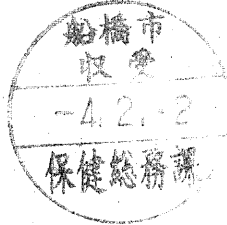 船橋市
収受
-4.2.-2
保健総務課